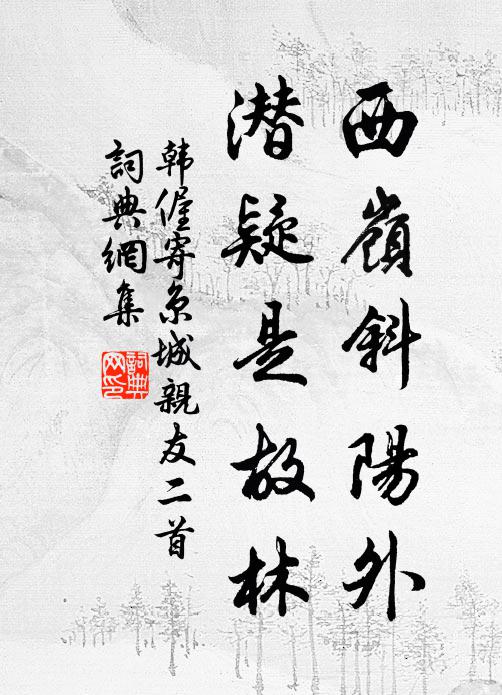 西嶺斜陽外
潛疑是故林
韩偓寄京城親友二首
詞典網集
詞典
网印